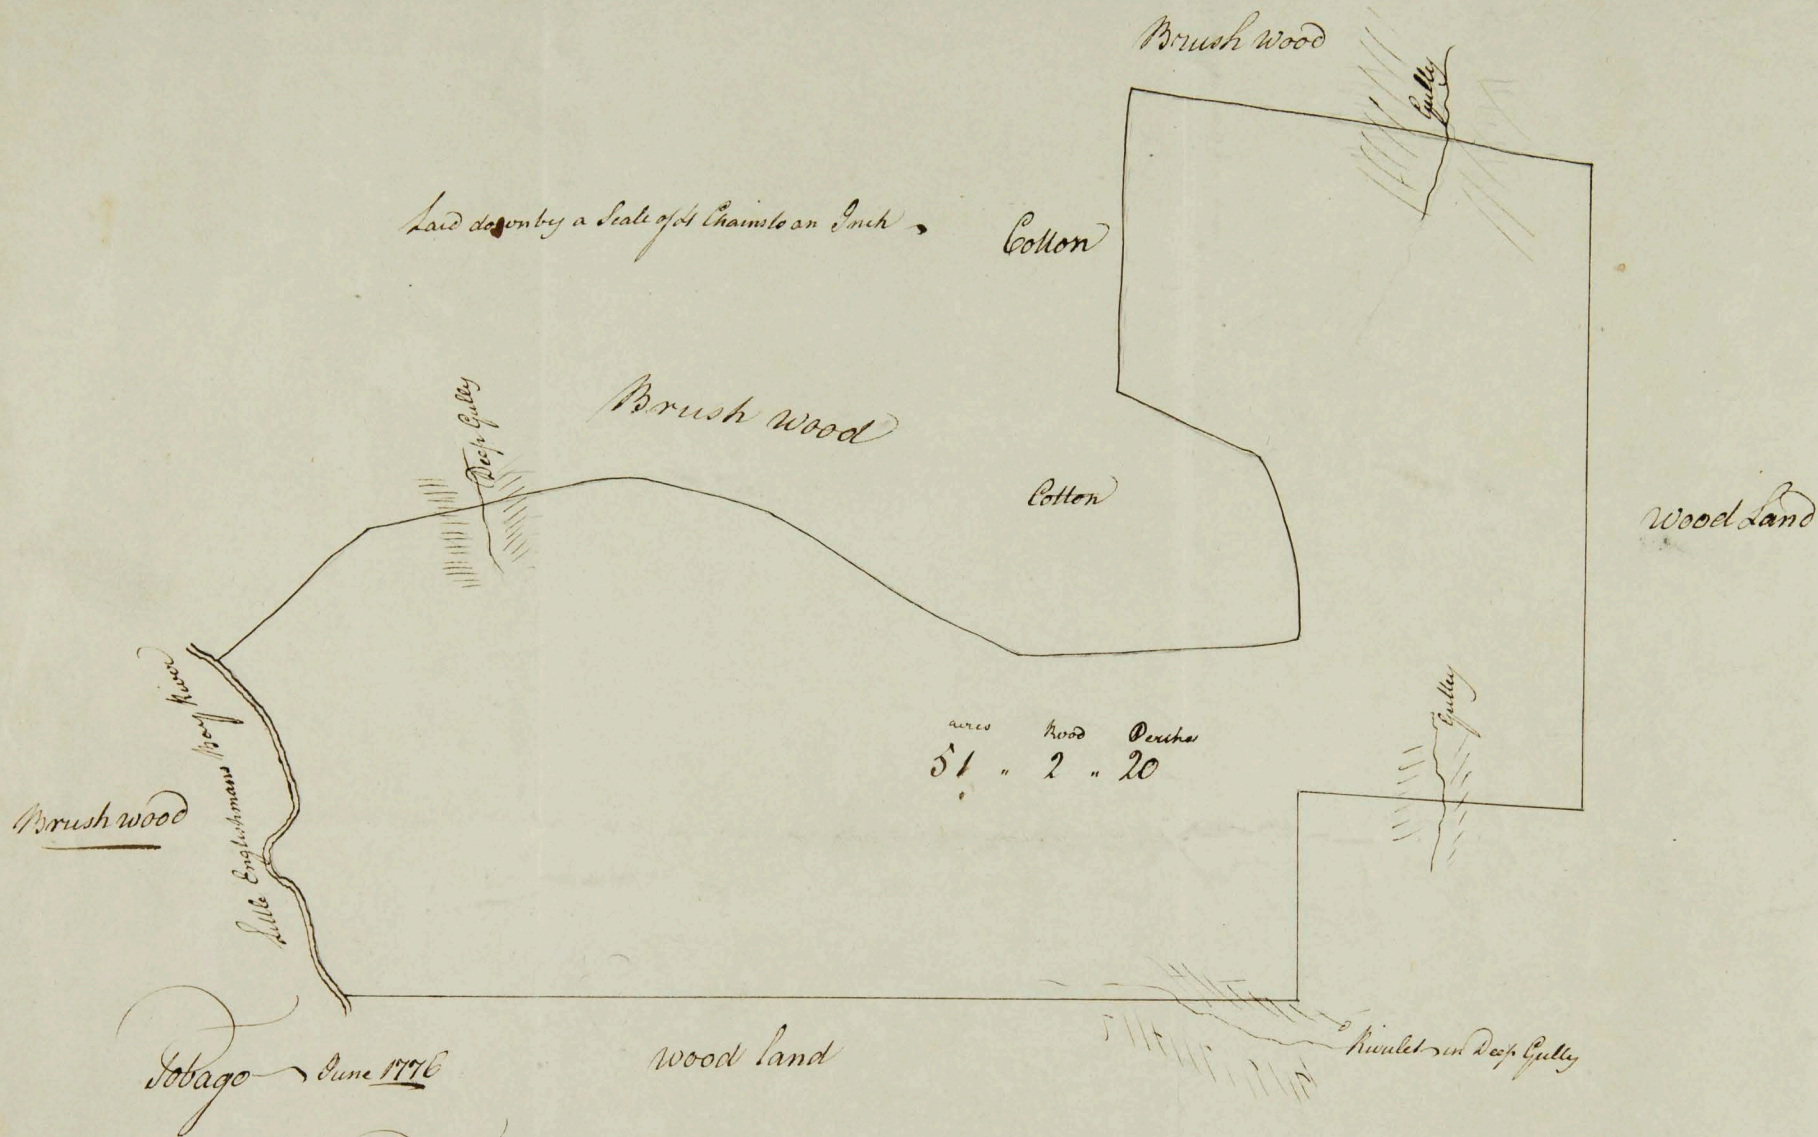 Brush wood
Gully
Laid down by a Scale of 4 Chains to an Inch
Cotton
Deep Gully
Brush wood
Cotton
Wood Land
Little Englishmans Bay River
Gulley
acres Rood Perches
51 " 2 " 20
Brush wood
Rivulet in Deep Gully
Tobago June 1776
wood land